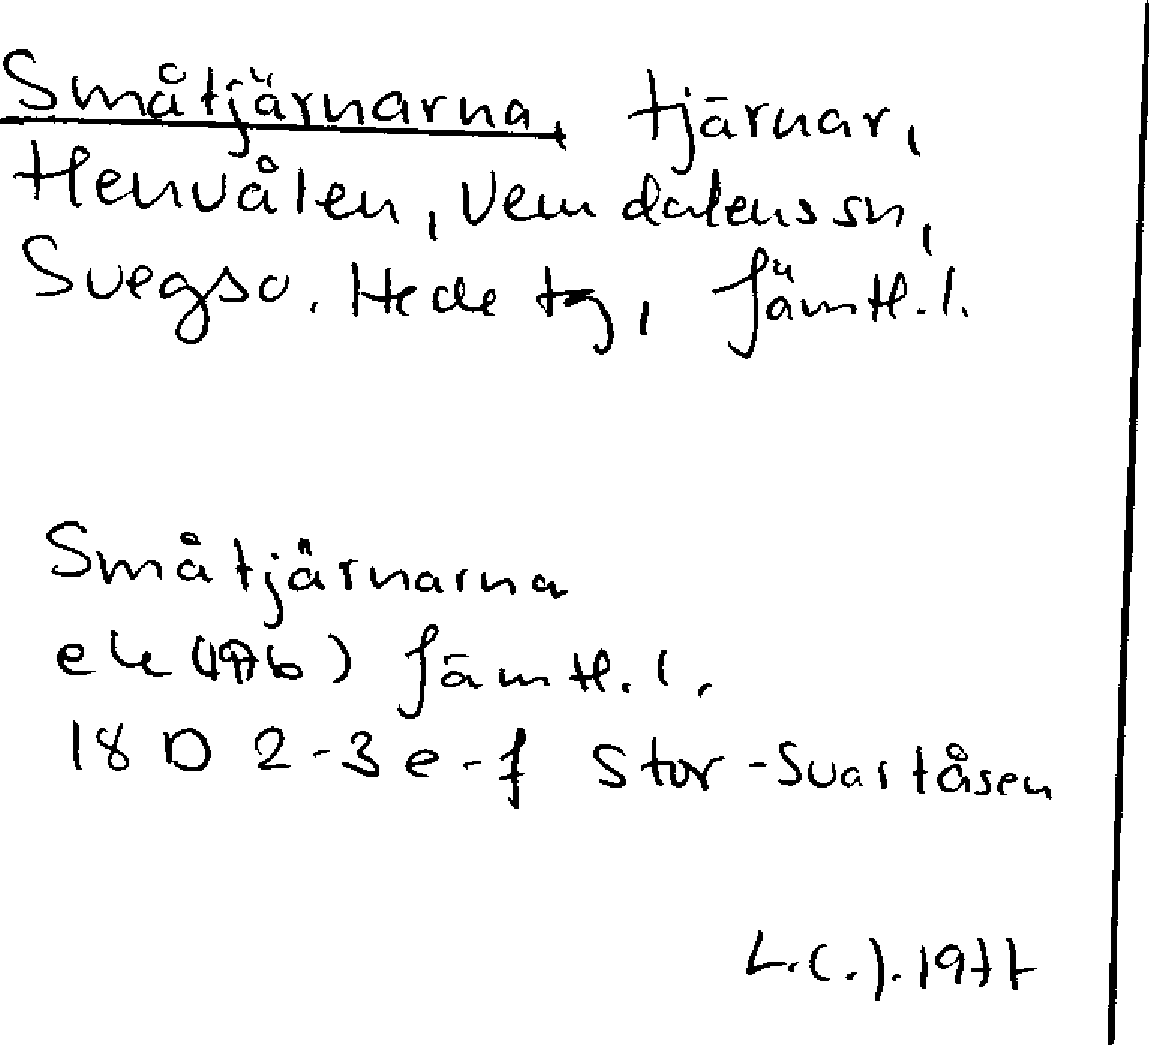 Småtjärnarna, tjärnar,
Henvålen, Vemdalens sn,
Svegs so. Hede tg, Jämtl. l.
Småtjärnarna
ek (1976) Jämtl. l.
18 D 2-3 e-f Stor-Svartåsen
L.C.J. 1977